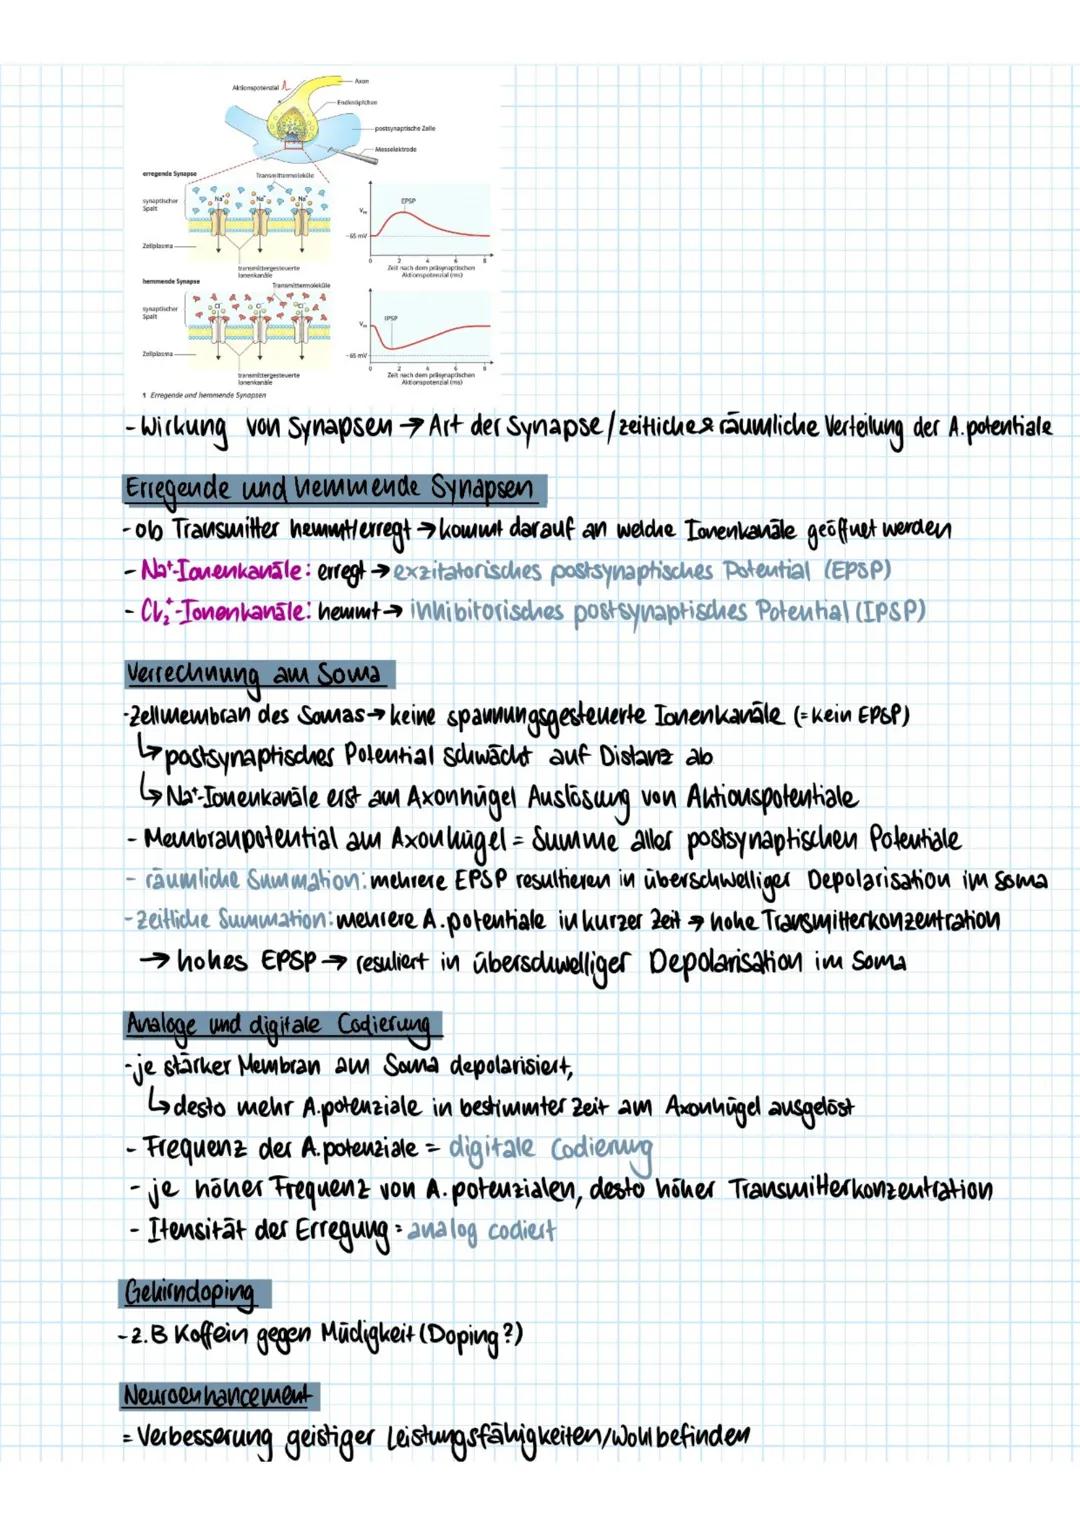 Aktionspotenzial
Axon
Endknöpfchen
postsynaptische Zelle
Messelektrode
erregende Synapse
Transmittermoleküle
synaptischer
Spalt
Na⁺ Na⁺ Na⁺
Zellplasma
transmittergesteuerte
Ionenkanäle
EPSP
-65 mV
0 2 4 6 8
Zeit nach dem präsynaptischen
Aktionspotenzial (ms)
hemmende Synapse
Transmittermoleküle
synaptischer
Spalt
Cl⁻ Cl⁻ Cl⁻
Zellplasma
transmittergesteuerte
Ionenkanäle
IPSP
-65 mV
0 2 4 6 8
Zeit nach dem präsynaptischen
Aktionspotenzial (ms)
1 Erregende und hemmende Synapsen
- Wirkung von Synapsen → Art der Synapse / zeitliche & räumliche Verteilung der A.potentiale
Erregende und hemmende Synapsen
- ob Transmitter hemmt/erregt → kommt darauf an welche Ionenkanäle geöffnet werden
- Na⁺-Ionenkanäle: erregt → exzitatorisches postsynaptisches Potential (EPSP)
- Cl₂⁺-Ionenkanäle: hemmt → inhibitorisches postsynaptisches Potential (IPSP)
Verrechnung am Soma
- Zellmembran des Somas → keine spannungsgesteuerte Ionenkanäle (= kein EPSP)
↳ postsynaptisches Potential schwächt auf Distanz ab
↳ Na⁺-Ionenkanäle erst am Axonhügel Auslösung von Aktionspotentiale
- Membranpotential am Axonhügel = Summe aller postsynaptischen Potentiale
- räumliche Summation: mehrere EPSP resultieren in überschwelliger Depolarisation im Soma
- zeitliche Summation: mehrere A.potentiale in kurzer Zeit → hohe Transmitterkonzentration
→ hohes EPSP → resuliert in überschwelliger Depolarisation im Soma
Analoge und digitale Codierung
- je stärker Membran am Soma depolarisiert,
↳ desto mehr A.potenziale in bestimmter Zeit am Axonhügel ausgelöst
- Frequenz der A.potenziale = digitale Codierung
- je höher Frequenz von A.potenzialen, desto höher Transmitterkonzentration
- Itensität der Erregung = analog codiert
Gehirndoping
- z.B Koffein gegen Müdigkeit (Doping?)
Neuroenhancement
= Verbesserung geistiger Leistungsfähigkeiten/Wohlbefinden